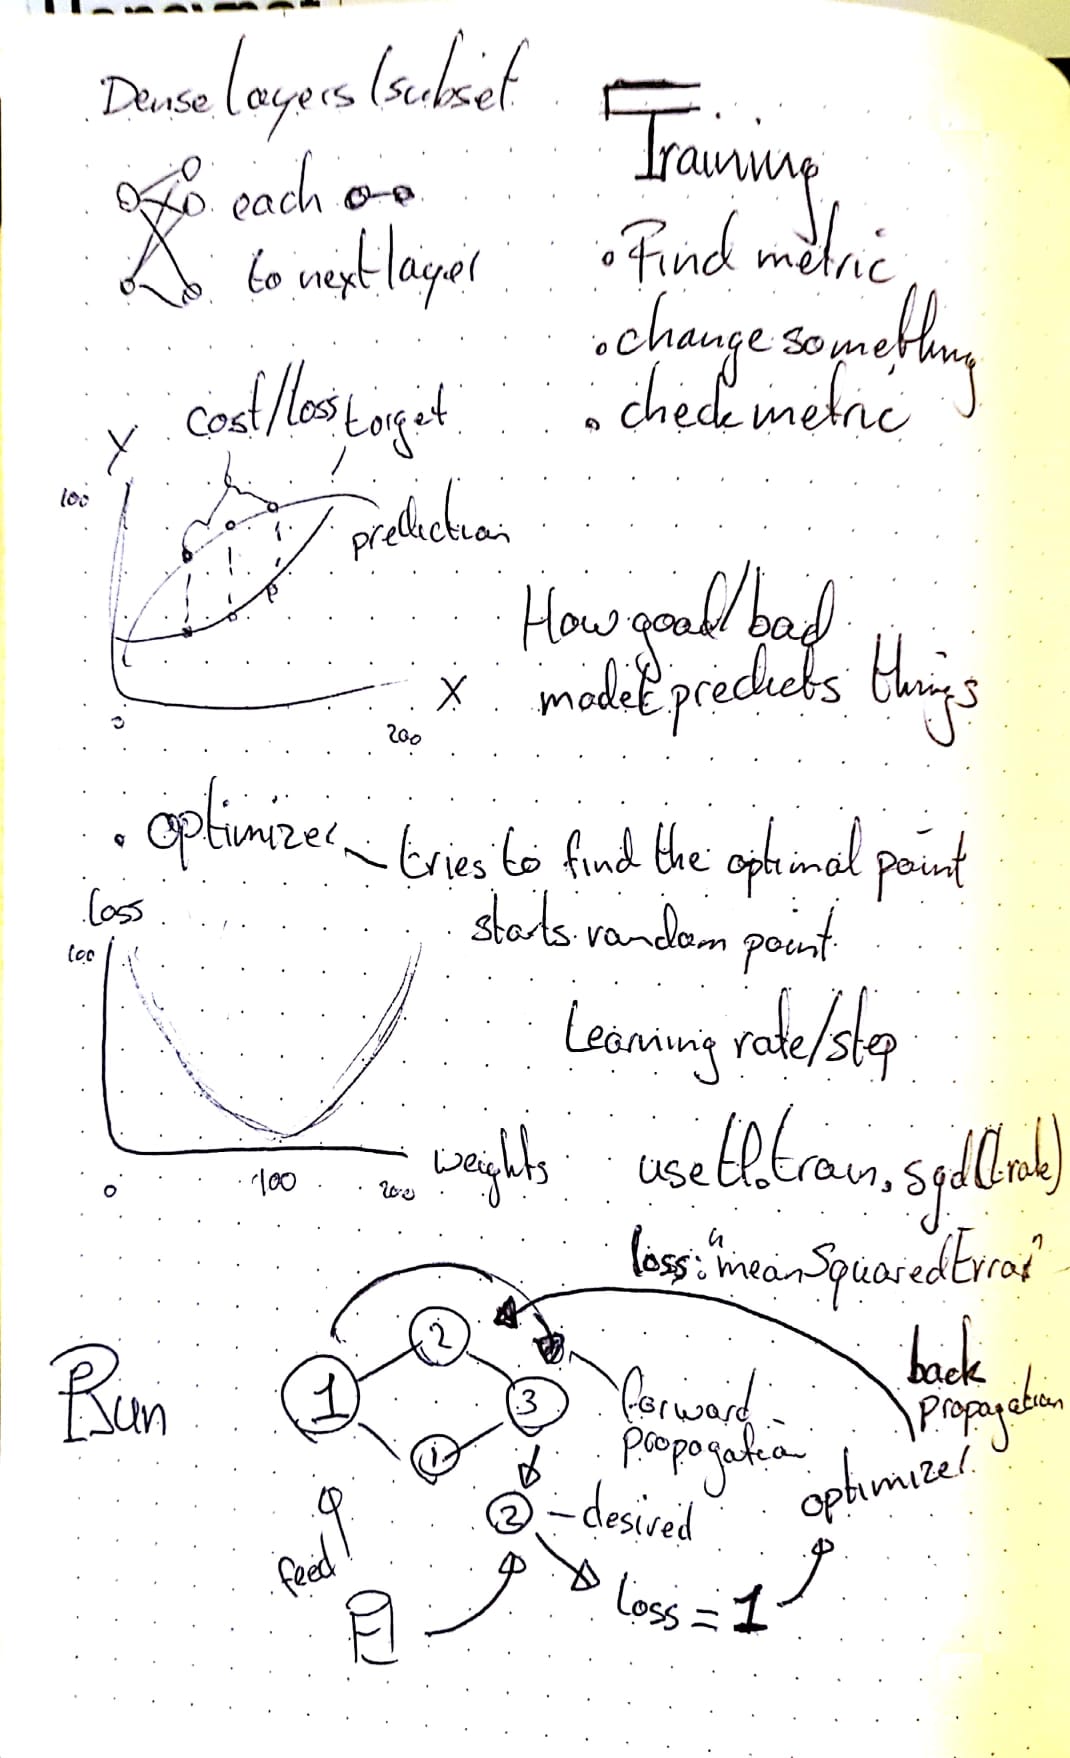 Dense layers (subset
each
to next layer
Training
Find metric
change something
check metric
cost/loss
target
Y
100
prediction
X
0
200
How good/bad
model predicts things
optimizer
tries to find the optimal point
starts random point
loss
100
Learning rate/step
weights
0
100
200
use tf.train.sgd(lrate)
loss: "meanSquaredError"
Run
1
2
3
1
forward
propogation
back
propagation
optimizer
2
desired
feed
loss = 1